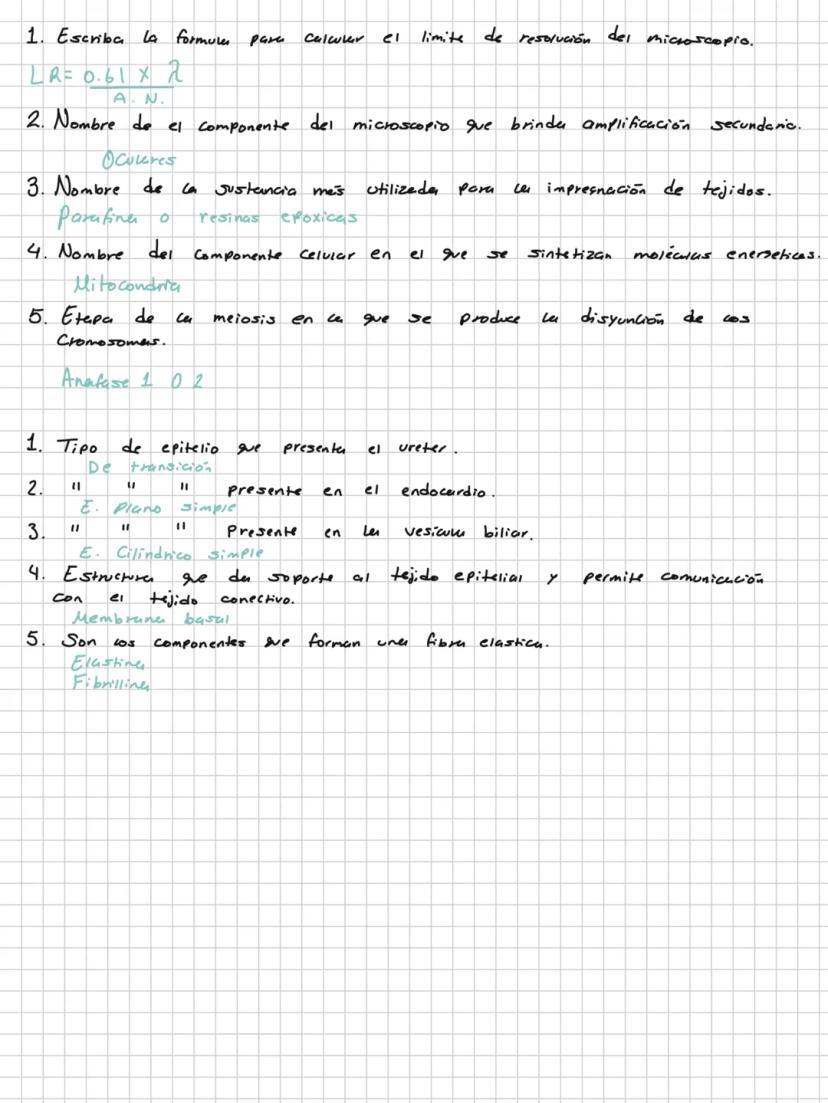 1. Escriba la formula para calcular el limite de resolución del microscopio.
LR= 0.61 x λ
A. N.
2. Nombre de el componente del microscopio que brinda amplificación secundaria.
Oculares
3. Nombre de la sustancia más utilizada para la impregnación de tejidos.
Parafina o resinas epoxicas
4. Nombre del componente celular en el que se sintetizan moléculas energeticas.
Mitocondria
5. Etapa de la meiosis en la que se produce la disyunción de los
cromosomas.
Anafase 1 o 2
1. Tipo de epitelio que presenta el ureter.
De transición
2. " " " presente en el endocardio.
E. plano simple
3. " " " Presente en la vesicula biliar.
E. Cilindrico simple
4. Estructura que da soporte al tejido epitelial y permite comunicación
con el tejido conectivo.
Membrana basal
5. Son los componentes que forman una fibra elastica.
Elastina
Fibrillina